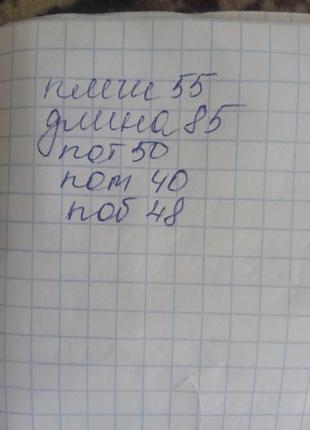 плеч 55
длина 85
пот 50
пот 40
поб 48